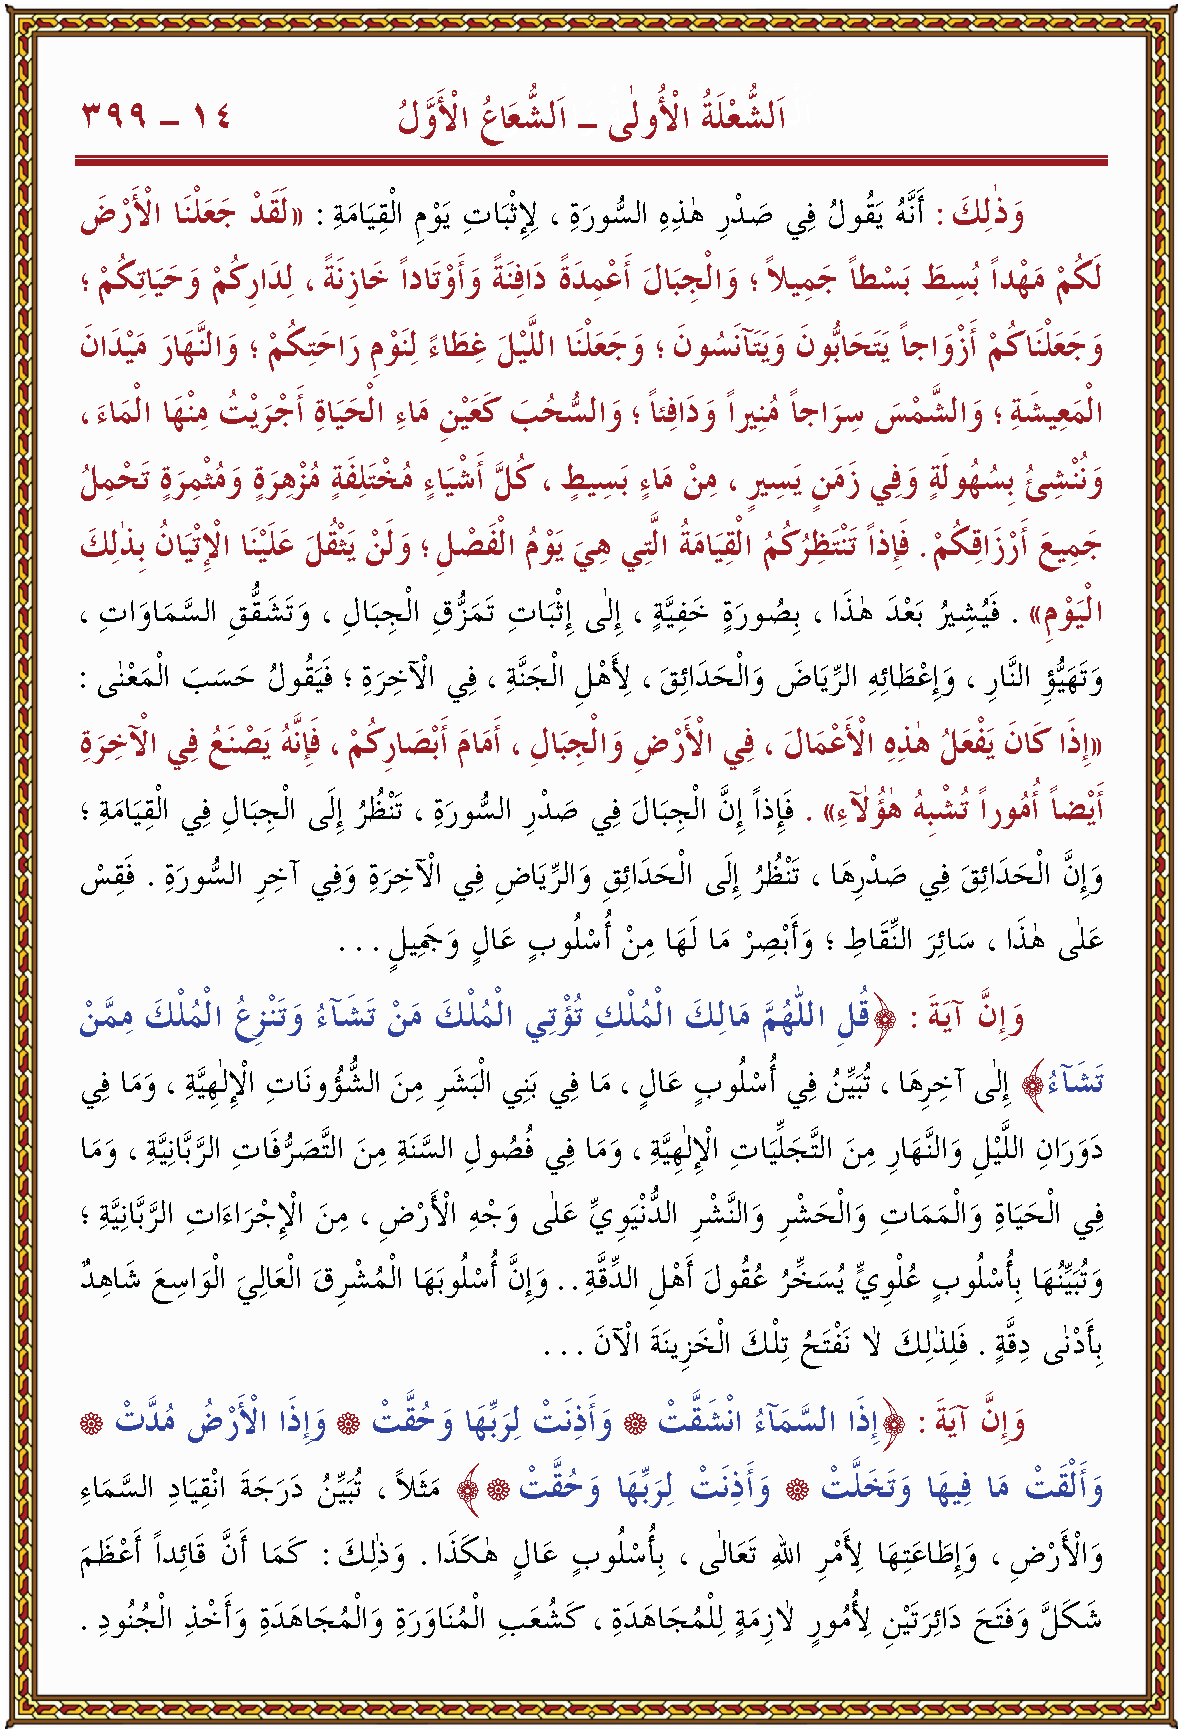 اَلشُّعْلَةُ الْأُولٰى – اَلشُّعَاعُ الْأَوَّلُ ١٤ – ٣٩٩
وَذٰلِكَ : أَنَّهُ يَقُولُ فِي صَدْرِ هٰذِهِ السُّورَةِ ، لِإِثْبَاتِ يَوْمِ الْقِيَامَةِ : «لَقَدْ جَعَلْنَا الْأَرْضَ
لَكُمْ مَهْداً بُسِطَ بَسْطاً جَمِيلاً ؛ وَالْجِبَالَ أَعْمِدَةً دَافِنَةً وَأَوْتَاداً خَازِنَةً ، لِدَارِكُمْ وَحَيَاتِكُمْ ؛
وَجَعَلْنَاكُمْ أَزْوَاجاً يَتَحَابُّونَ وَيَتَآنَسُونَ ؛ وَجَعَلْنَا اللَّيْلَ غِطَاءً لِنَوْمِ رَاحَتِكُمْ ؛ وَالنَّهَارَ مَيْدَانَ
الْمَعِيشَةِ ؛ وَالشَّمْسَ سِرَاجاً مُنِيراً وَدَافِئاً ؛ وَالسُّحُبَ كَعَيْنِ مَاءِ الْحَيَاةِ أَجْرَيْتُ مِنْهَا الْمَاءَ ،
وَنُنْشِئُ بِسُهُولَةٍ وَفِي زَمَنٍ يَسِيرٍ ، مِنْ مَاءٍ بَسِيطٍ ، كُلَّ أَشْيَاءٍ مُخْتَلِفَةٍ مُزْهِرَةٍ وَمُثْمِرَةٍ تَحْمِلُ
جَمِيعَ أَرْزَاقِكُمْ . فَإِذاً تَنْتَظِرُكُمُ الْقِيَامَةُ الَّتِي هِيَ يَوْمُ الْفَصْلِ ؛ وَلَنْ يَثْقُلَ عَلَيْنَا الْإِتْيَانُ بِذٰلِكَ
الْيَوْمِ» . فَيُشِيرُ بَعْدَ هٰذَا ، بِصُورَةٍ خَفِيَّةٍ ، إِلٰى إِثْبَاتِ تَمَزُّقِ الْجِبَالِ ، وَتَشَقُّقِ السَّمَاوَاتِ ،
وَتَهَيُّؤِ النَّارِ ، وَإِعْطَائِهِ الرِّيَاضَ وَالْحَدَائِقَ ، لِأَهْلِ الْجَنَّةِ ، فِي الْآخِرَةِ ؛ فَيَقُولُ حَسَبَ الْمَعْنٰى :
«إِذَا كَانَ يَفْعَلُ هٰذِهِ الْأَعْمَالَ ، فِي الْأَرْضِ وَالْجِبَالِ ، أَمَامَ أَبْصَارِكُمْ ، فَإِنَّهُ يَصْنَعُ فِي الْآخِرَةِ
أَيْضاً أُمُوراً تُشْبِهُ هٰؤُلَآءِ» . فَإِذاً إِنَّ الْجِبَالَ فِي صَدْرِ السُّورَةِ ، تَنْظُرُ إِلَى الْجِبَالِ فِي الْقِيَامَةِ ؛
وَإِنَّ الْحَدَائِقَ فِي صَدْرِهَا ، تَنْظُرُ إِلَى الْحَدَائِقِ وَالرِّيَاضِ فِي الْآخِرَةِ وَفِي آخِرِ السُّورَةِ . فَقِسْ
عَلٰى هٰذَا ، سَائِرَ النِّقَاطِ ؛ وَأَبْصِرْ مَا لَهَا مِنْ أُسْلُوبٍ عَالٍ وَجَمِيلٍ . . .
وَإِنَّ آيَةَ : ﴿قُلِ اللّٰهُمَّ مَالِكَ الْمُلْكِ تُؤْتِي الْمُلْكَ مَنْ تَشَآءُ وَتَنْزِعُ الْمُلْكَ مِمَّنْ
تَشَآءُ﴾ إِلٰى آخِرِهَا ، تُبَيِّنُ فِي أُسْلُوبٍ عَالٍ ، مَا فِي بَنِي الْبَشَرِ مِنَ الشُّؤُونَاتِ الْإِلٰهِيَّةِ ، وَمَا فِي
دَوَرَانِ اللَّيْلِ وَالنَّهَارِ مِنَ التَّجَلِّيَاتِ الْإِلٰهِيَّةِ ، وَمَا فِي فُصُولِ السَّنَةِ مِنَ التَّصَرُّفَاتِ الرَّبَّانِيَّةِ ، وَمَا
فِي الْحَيَاةِ وَالْمَمَاتِ وَالْحَشْرِ وَالنَّشْرِ الدُّنْيَوِيِّ عَلٰى وَجْهِ الْأَرْضِ ، مِنَ الْإِجْرَاءَاتِ الرَّبَّانِيَّةِ ؛
وَتُبَيِّنُهَا بِأُسْلُوبٍ عُلْوِيٍّ يُسَخِّرُ عُقُولَ أَهْلِ الدِّقَّةِ . . وَإِنَّ أُسْلُوبَهَا الْمُشْرِقَ الْعَالِيَ الْوَاسِعَ شَاهِدٌ
بِأَدْنٰى دِقَّةٍ . فَلِذٰلِكَ لَا نَفْتَحُ تِلْكَ الْخَزِينَةَ الْآنَ . . .
وَإِنَّ آيَةَ : ﴿إِذَا السَّمَآءُ انْشَقَّتْ ۞ وَأَذِنَتْ لِرَبِّهَا وَحُقَّتْ ۞ وَإِذَا الْأَرْضُ مُدَّتْ ۞
وَأَلْقَتْ مَا فِيهَا وَتَخَلَّتْ ۞ وَأَذِنَتْ لِرَبِّهَا وَحُقَّتْ ۞﴾ مَثَلاً ، تُبَيِّنُ دَرَجَةَ انْقِيَادِ السَّمَاءِ
وَالْأَرْضِ ، وَإِطَاعَتِهَا لِأَمْرِ اللهِ تَعَالٰى ، بِأُسْلُوبٍ عَالٍ هٰكَذَا . وَذٰلِكَ : كَمَا أَنَّ قَائِداً أَعْظَمَ
شَكَّلَ وَفَتَحَ دَائِرَتَيْنِ لِأُمُورٍ لَازِمَةٍ لِلْمُجَاهَدَةِ ، كَشُعَبِ الْمُنَاوَرَةِ وَالْمُجَاهَدَةِ وَأَخْذِ الْجُنُودِ .